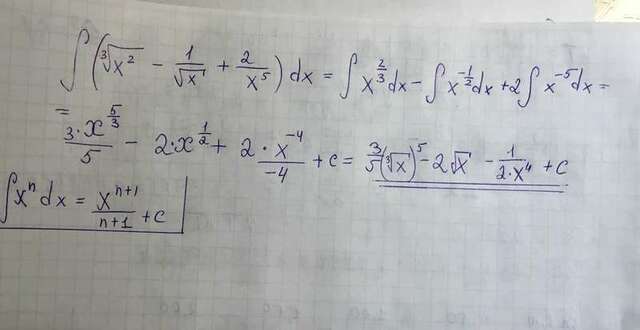 ∫(∛x² - 1/√x + 2/x⁵) dx = ∫x^(2/3) dx - ∫x^(-1/2) dx + 2∫x^(-5) dx =
= (3·x^(5/3))/5 - 2·x^(1/2) + 2·(x^(-4))/(-4) + c = 3/5(∛x)⁵ - 2√x - 1/(2·x⁴) + c
∫xⁿ dx = (x^(n+1))/(n+1) + c